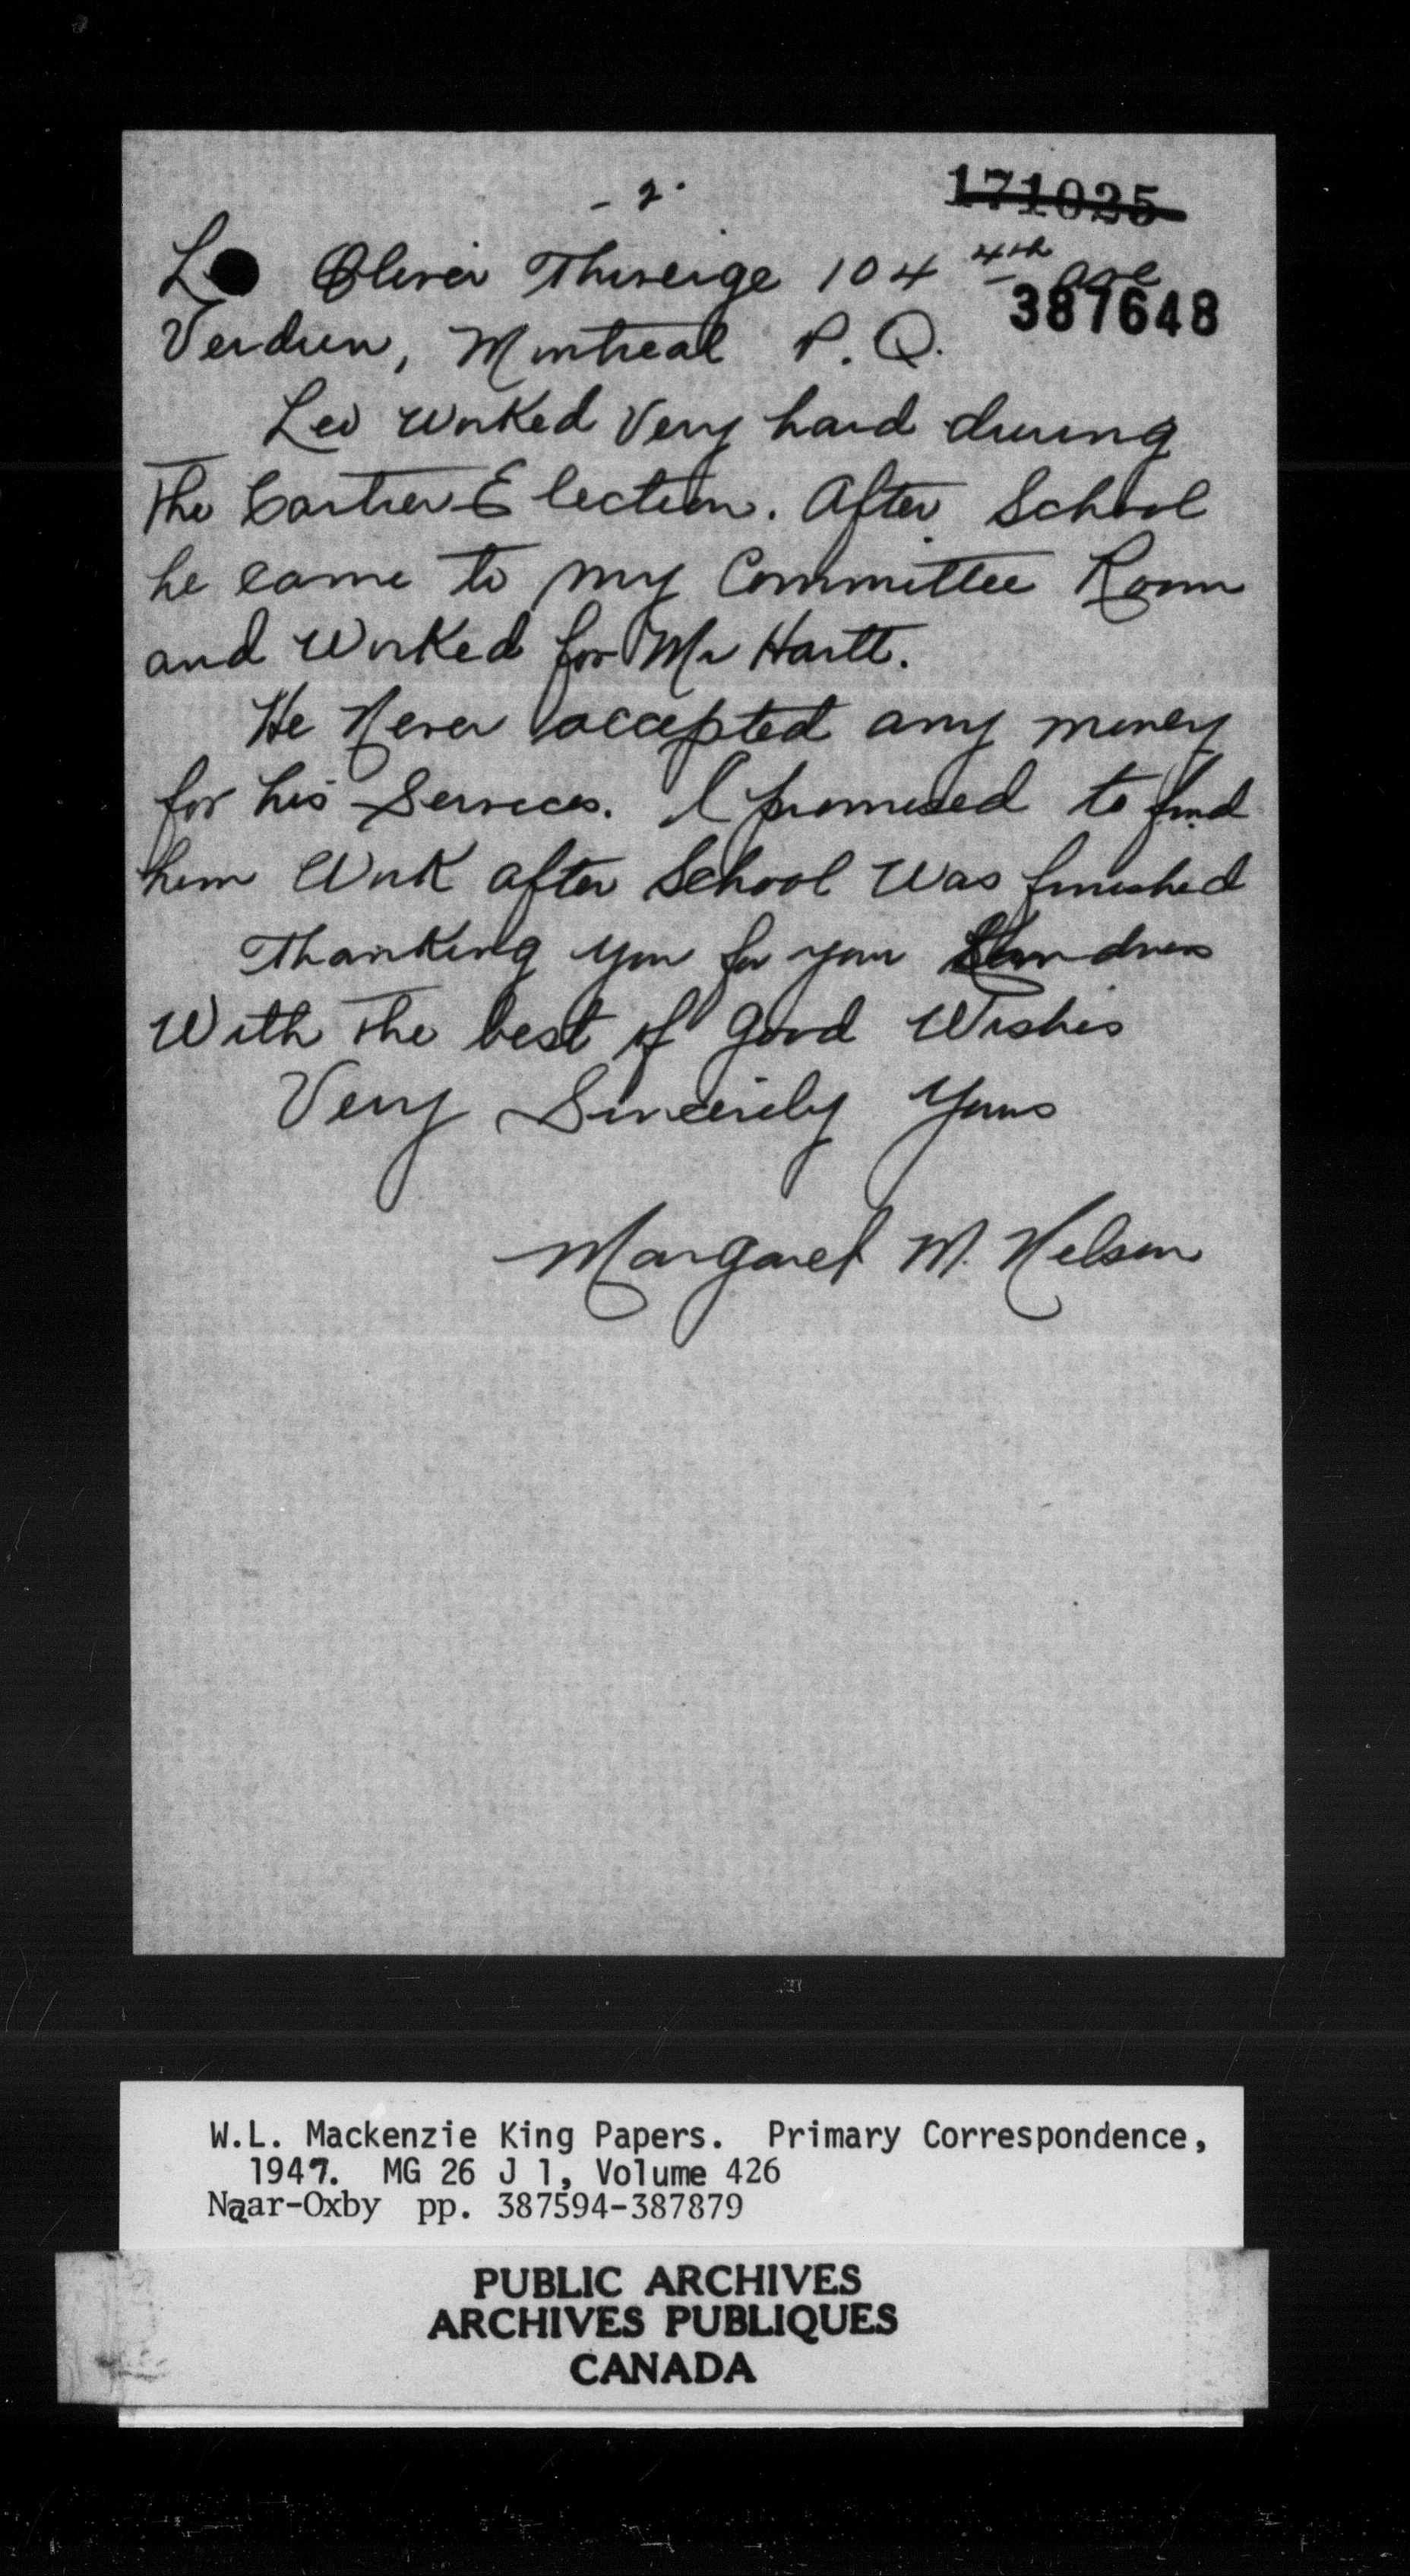 - 2 -
171025
L Oliver Thivierge 104 4th ave
387648
Verdun, Montreal P.Q.
Leo worked Very hard during
The Cartier Election. After School
he came to my Committee Room
and Worked for Mr Hartt.
He Never accepted any money
for his Services. I promised to find
him Work after School Was finished
Thanking you for your Kindness
With The best of Good Wishes
Very Sincerely Yours
Margaret M. Nelson
W.L. Mackenzie King Papers. Primary Correspondence,
1947. MG 26 J 1, Volume 426
Naar-Oxby pp. 387594-387879
PUBLIC ARCHIVES
ARCHIVES PUBLIQUES
CANADA